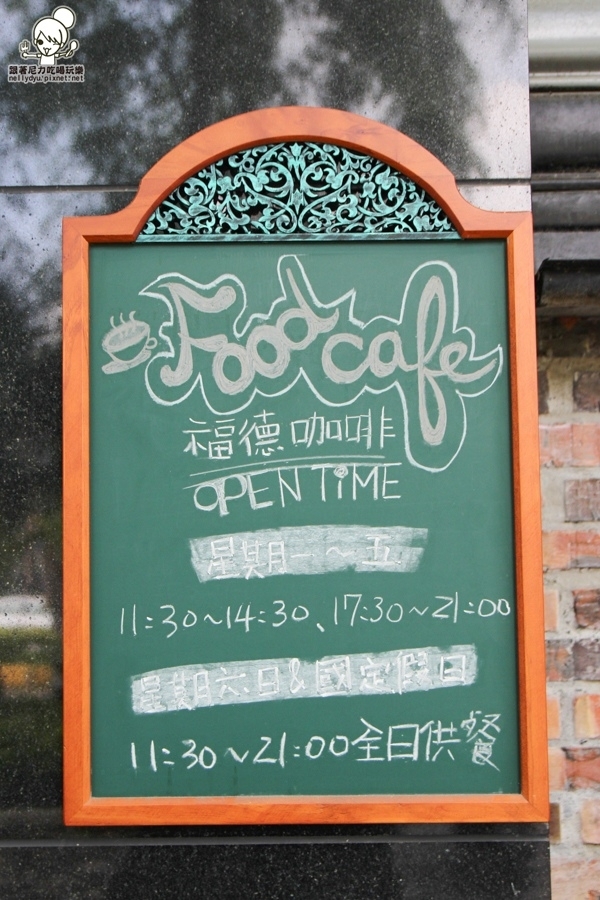 跟著尼力吃喝玩樂
nellydyu.pixnet.net
Food cafe
福德咖啡
OPEN TiME
星期一～五
11:30～14:30、17:30～21:00
星期六日&國定假日
11:30～21:00全日供餐